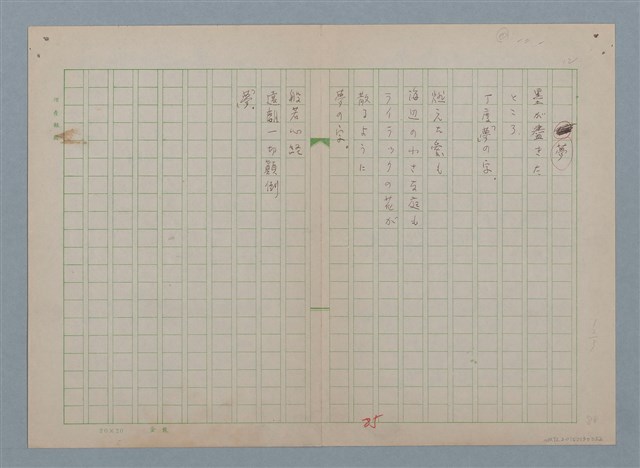 夢
墨が盡きた
ところ
丁度夢の字。
燃えた愛も
海辺の小さな庭も
ライラックの花が
散るように
夢の字。
般若心経
遠離一切顛倒
夢。
25